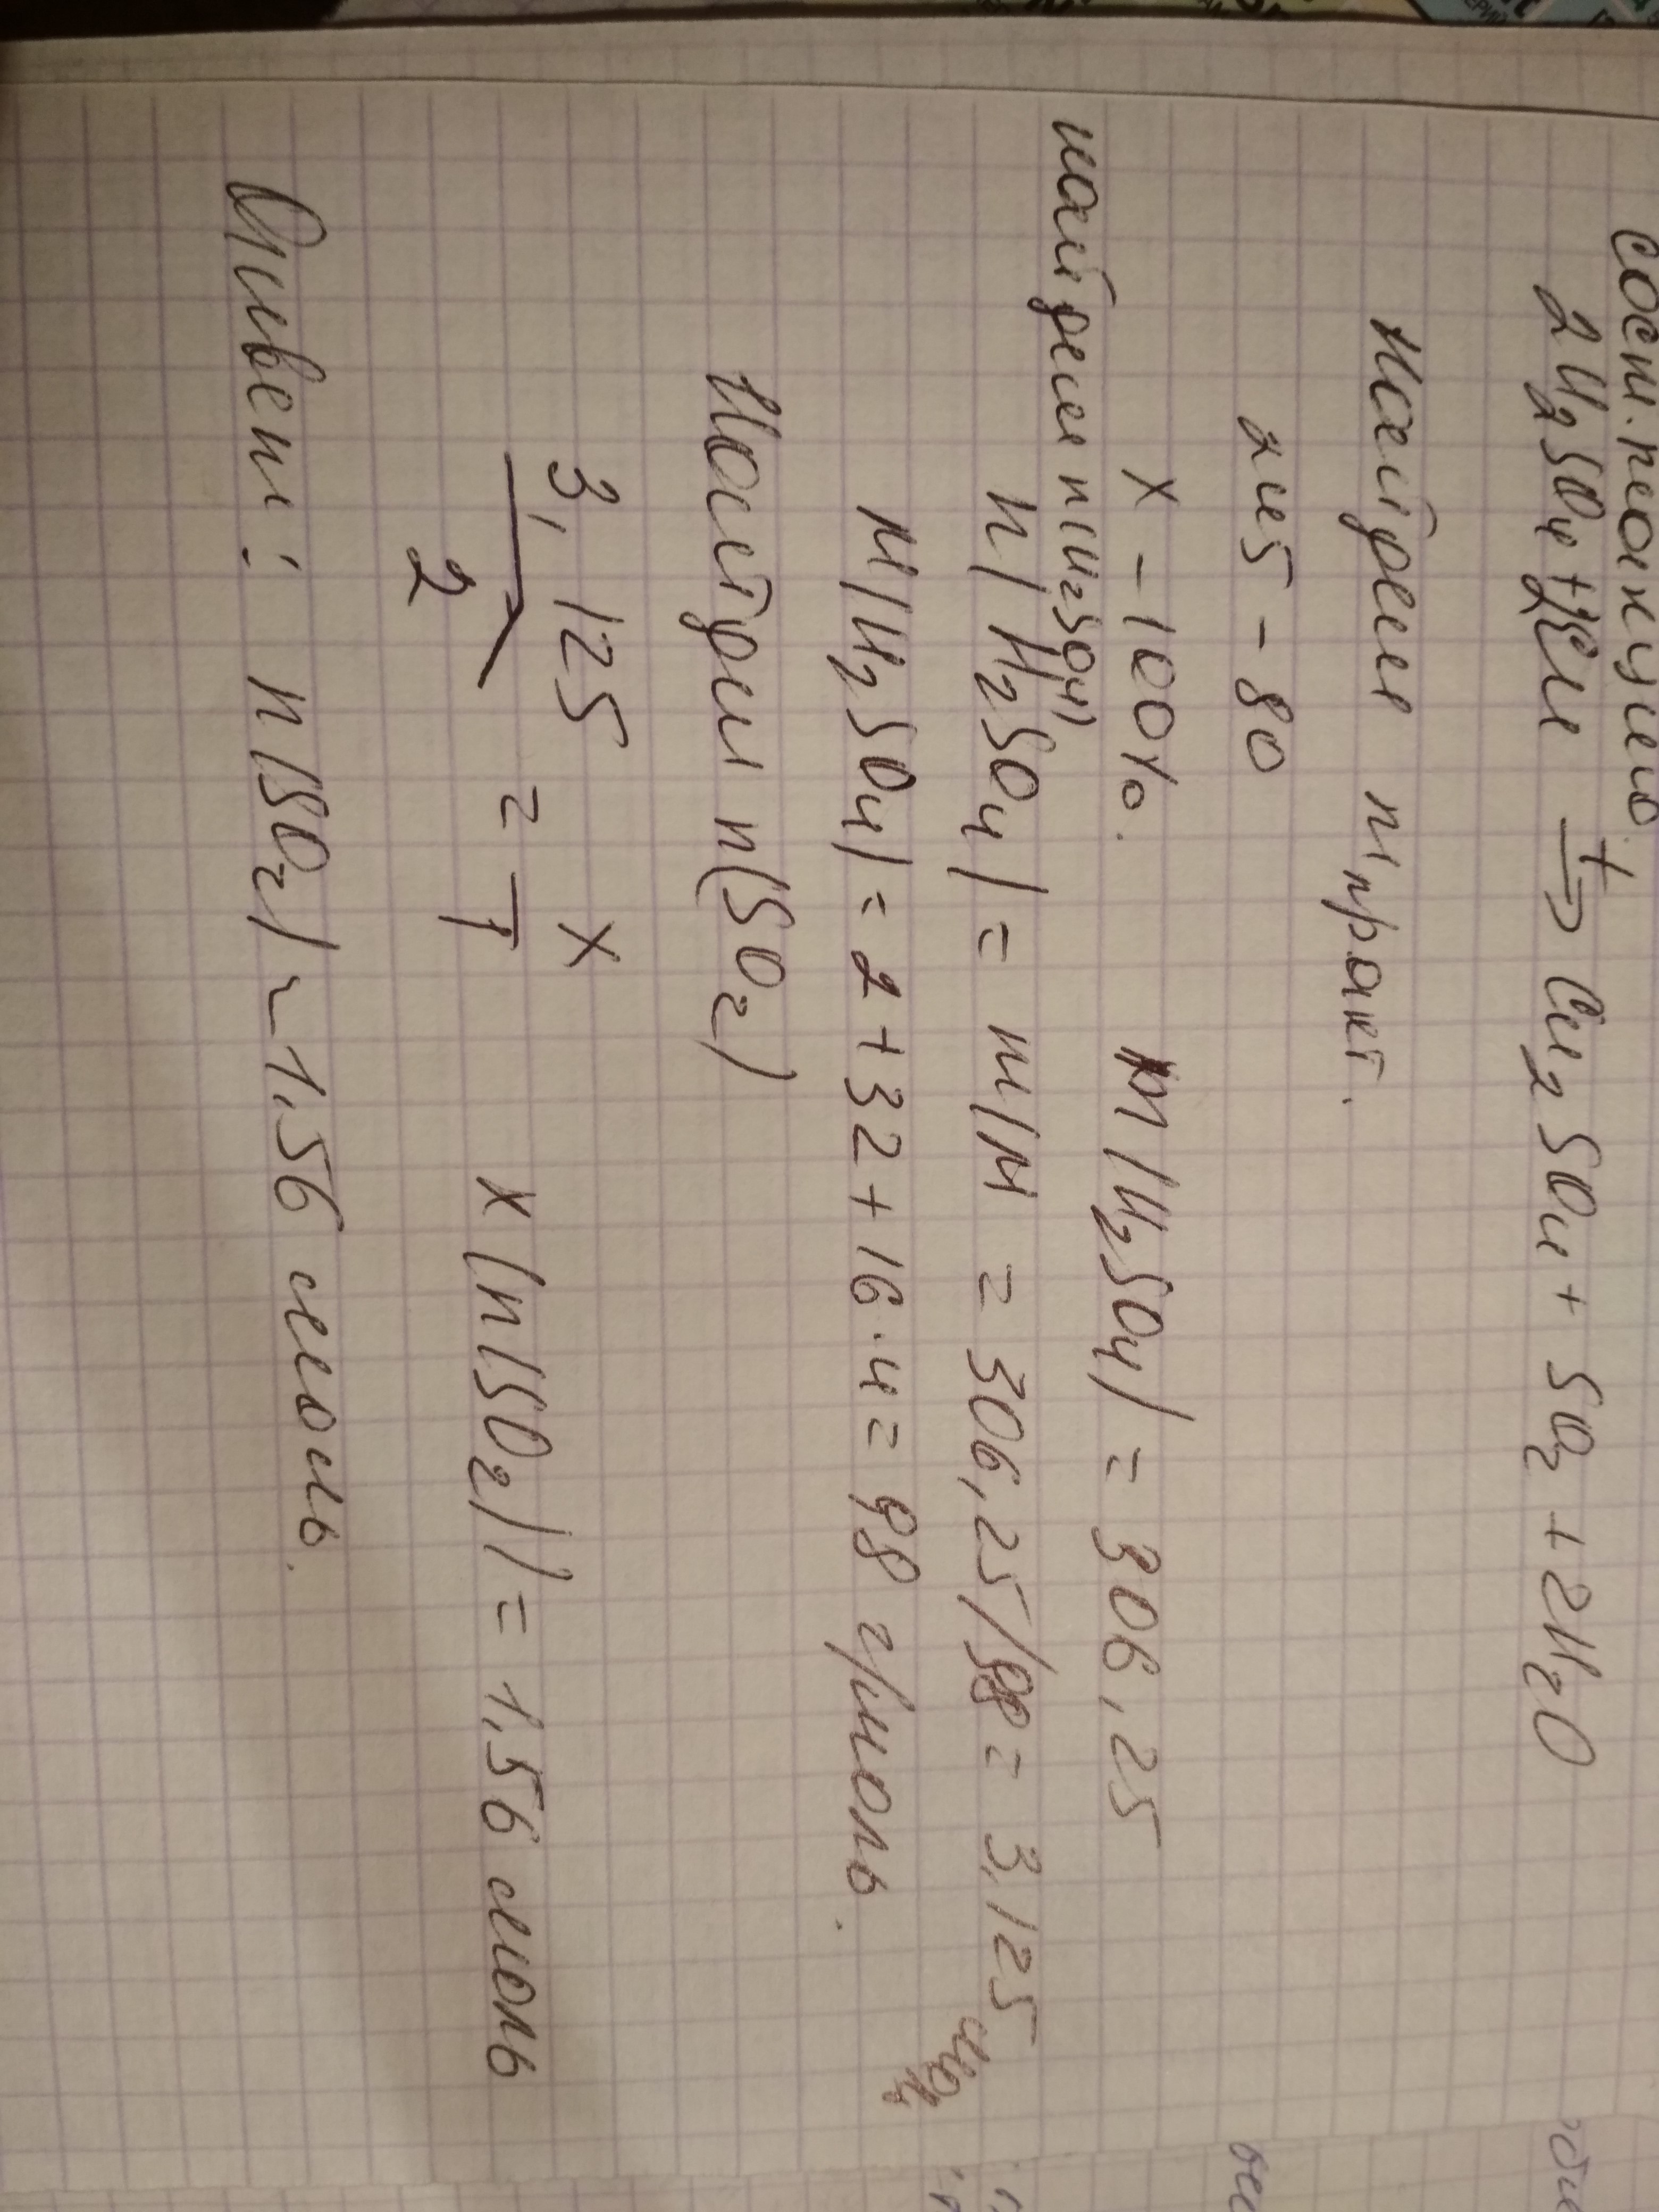 Сост. реакцию.
2H₂SO₄ + 2Cu →t Cu₂SO₄ + SO₂ + 2H₂O
Найдем m практ.
245 - 80
x - 100%. m(H₂SO₄) = 306,25
найдем n(H₂SO₄)
n(H₂SO₄) = m/M = 306,25/98 = 3,125 моль
M(H₂SO₄) = 2+32+16·4 = 98 г/моль.
Найдем n(SO₂)
3,125 x
2 = 1 x(n(SO₂)) = 1,56 моль
Ответ: n(SO₂) ~ 1,56 моль.